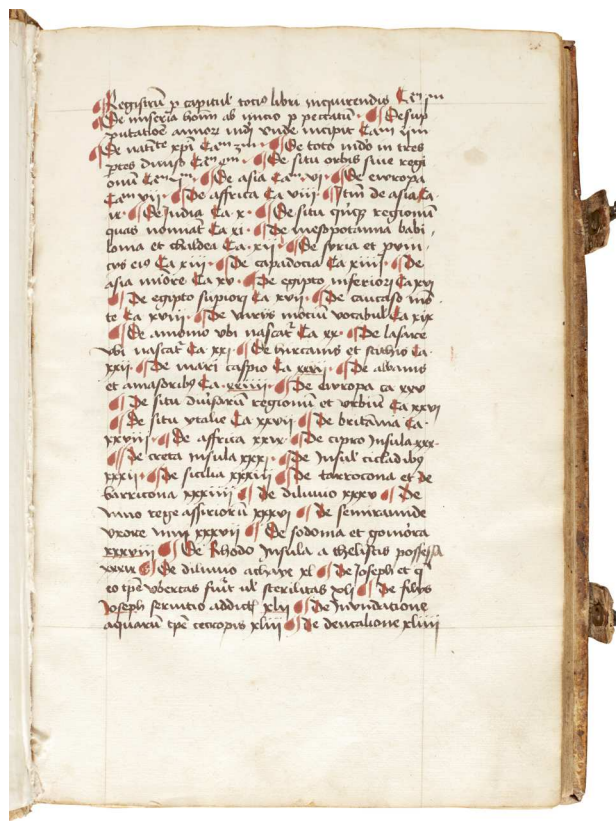 Registrũ p capitul totiꝰ libri inquirendis Caᵐ pm
De miseria hoĩm ab inicio p peccatũ · De sup
putatõe annoꝝ mdi vnde incipit Caᵐ ijm
De natĩte xpi Caᵐ 3m · De toto mdo in tres
ptes diuiso Caᵐ 4m · De situ orbis siue regi
onũ Caᵐ · De asia Caᵐ vj · De evropa
Caᵐ vij · De affrica Ca viij · Itm̃ de asia Ca
ix · De India Ca x · De situ qꝫ regionũ
quas nominat Ca xi · De mesopotamia babi,
lonia et Chaldea Ca · xij · De syria et
eiꝰ Ca xiij · De capadocia Ca xiiij · De
asia miõre Ca xv · De egipto inferiorj Ca xvj
De egipto supiorj Ca xvij · De caucaso mõ
te Ca xviij · De varijs motiũ vocabul Ca xix
De amonio vbi nascat̃ Ca xx · De lasare
vbi nascat̃ Ca xxj · De hircanis et scithis Ca
xxij · De mari caspio Ca xxiij · De albanis
et amasoibꝫ Ca · xxiiij · De evropa ca xxv
De situ diũsarũ regionũ et vrbiũ Ca xxvj
De situ ytalie Ca xxvij · De britãnia Ca
xxviij · De affrica xxix · De cipro Insula xxx ·
De creta Insula xxxj · De Insul cicladibꝫ
xxxij · De sicilia xxxiij De tarrocona et de
barricona xxxiiij De diluuio xxxv De
nino rege assiriorũ xxxvj De semiramide
vxore nini xxxvij De sodoma et gomõra
xxxviij De Rhodo Insula a thelistis possessa
xxxix De diluuio achaye xl De Joseph et q
eo tpẽ vbertas fuit ul sterilitas xlj De filijs
Joseph seruitio addictꝭ xlij De Inundatione
aquarũ tpẽ cecropis xliij De deucalione xliiij